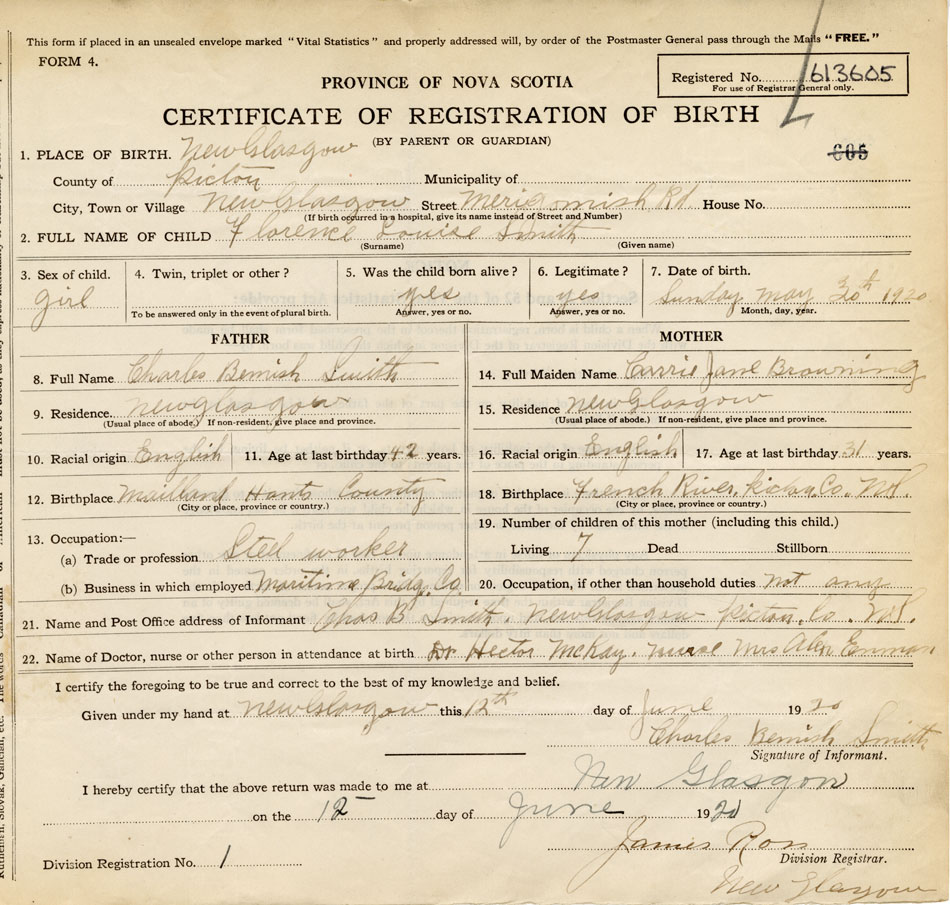 This form if placed in an unsealed envelope marked "Vital Statistics" and properly addressed will, by order of the Postmaster General pass through the Mails "FREE."
FORM 4.
Registered No. 613605
For use of Registrar General only.
PROVINCE OF NOVA SCOTIA
CERTIFICATE OF REGISTRATION OF BIRTH
(BY PARENT OR GUARDIAN)
605
1. PLACE OF BIRTH. New Glasgow
County of Pictou Municipality of
City, Town or Village New Glasgow Street Merigomish Rd House No.
(If birth occurred in a hospital, give its name instead of Street and Number)
2. FULL NAME OF CHILD Florence Louise Smith
(Surname) (Given name)
3. Sex of child. 4. Twin, triplet or other? 5. Was the child born alive? 6. Legitimate? 7. Date of birth.
girl yes yes Sunday May 30th 1920
To be answered only in the event of plural birth. Answer, yes or no. Answer, yes or no. Month, day, year.
FATHER
8. Full Name Charles Bemish Smith
9. Residence. New glasgow
(Usual place of abode.) If non-resident, give place and province.
10. Racial origin English 11. Age at last birthday 42 years.
12. Birthplace Maitland Hants County
(City or place, province or country.)
13. Occupation:—
(a) Trade or profession Stell worker
(b) Business in which employed Maritime Bridg. Co
MOTHER
14. Full Maiden Name Carrie Jane Browning
15. Residence New Glasgow
(Usual place of abode.) If non-resident, give place and province.
16. Racial origin English 17. Age at last birthday 31 years.
18. Birthplace French River, Pictou Co. N.S.
(City or place, province or country.)
19. Number of children of this mother (including this child.)
Living 7 Dead Stillborn
20. Occupation, if other than household duties not any
21. Name and Post Office address of Informant Chas B Smith. New Glasgow Pictou Co. N.S.
22. Name of Doctor, nurse or other person in attendance at birth Dr Hector McKay. nurse Mrs Alex Enman
I certify the foregoing to be true and correct to the best of my knowledge and belief.
Given under my hand at New Glasgow this 12th day of June 1920
Charles Bemish Smith
Signature of Informant.
I hereby certify that the above return was made to me at New Glasgow
on the 12 day of June 1920
James Ross
Division Registrar.
Division Registration No. 1
New Glasgow